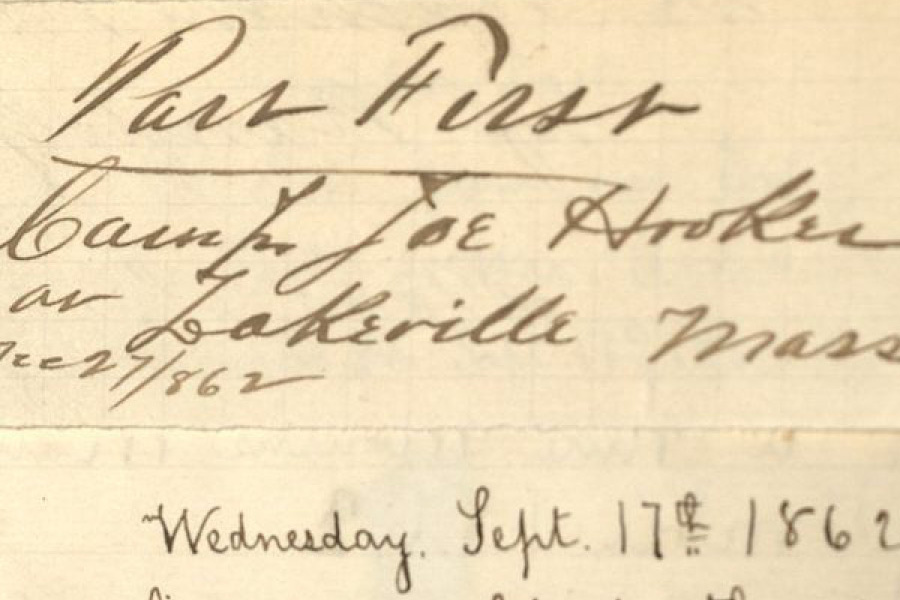 Part First
Camp Joe Hooker
at Lakeville Mass
Dec 27/1862
Wednesday. Sept. 17th 1862